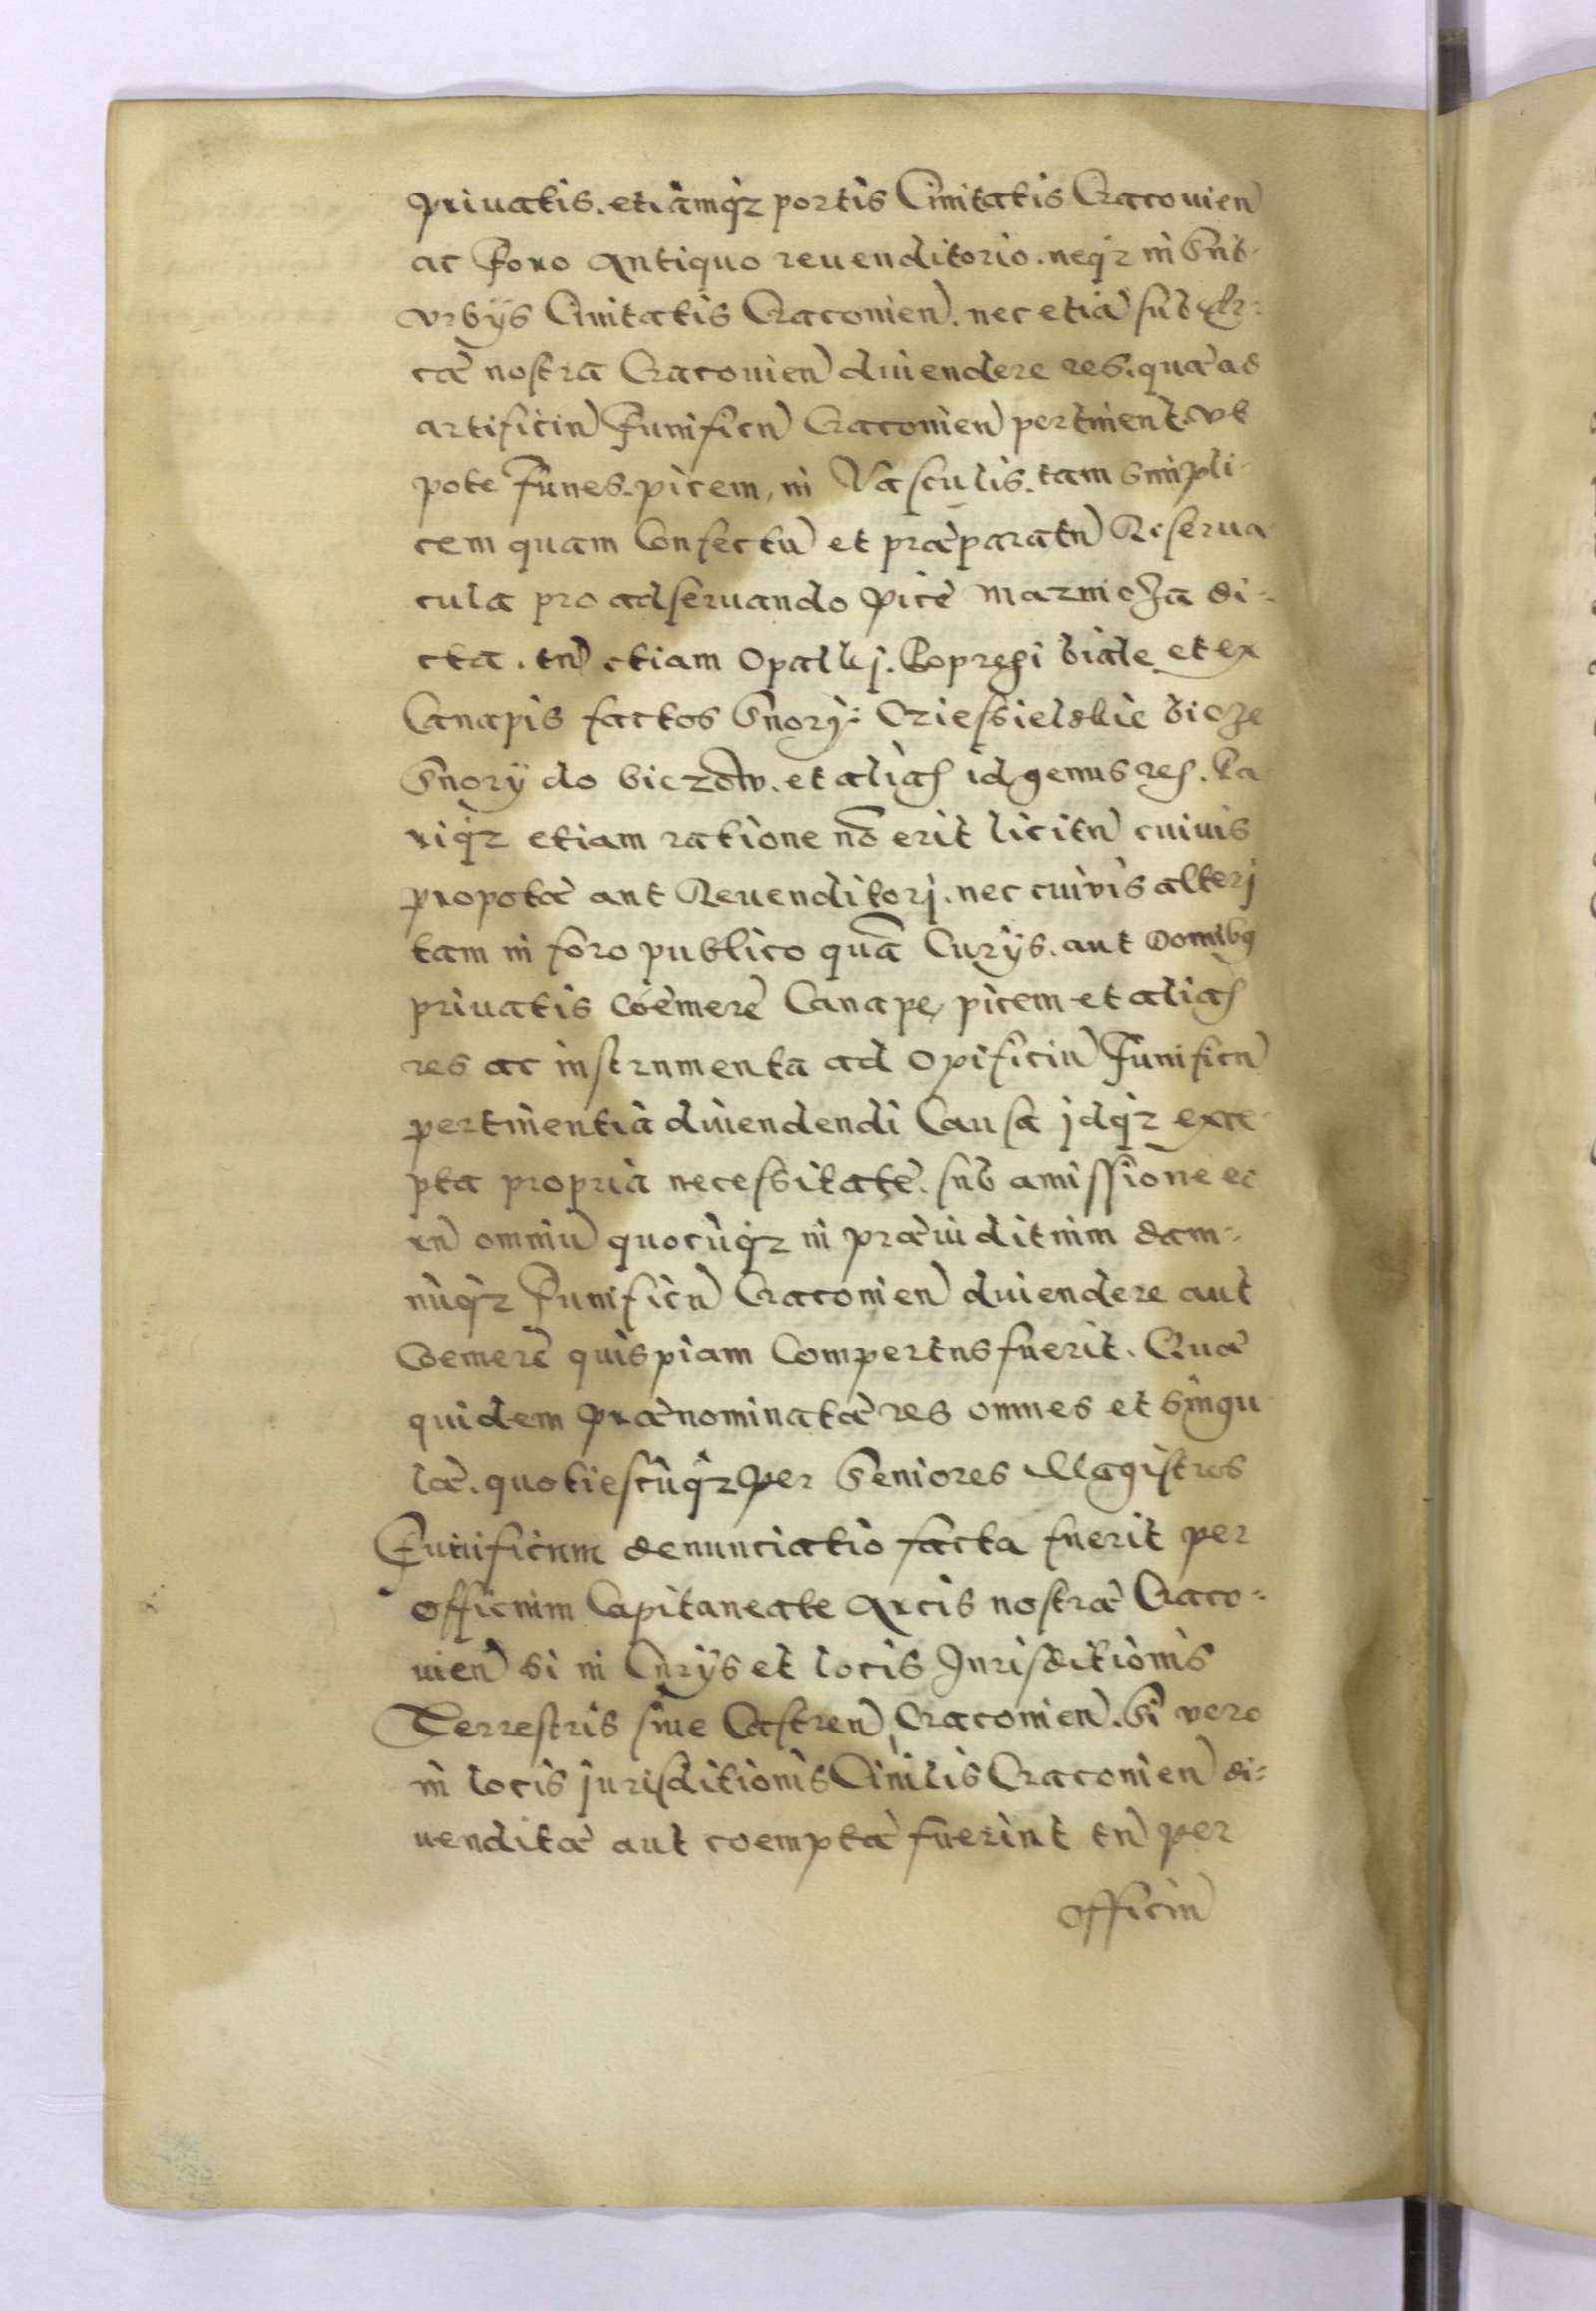 priuatis. etiamq̇z portis Ciuitatis Cracouien̄
ac Foro Antiquo reuenditorio. neq̇z in Sub-
vrbÿs Ciuitatis Cracouien̄. nec etiā sub Ar-
ce nostra Cracouien̄ diuendere res. quæ ad
artificiū Funificū Cracouien̄ pertinent. vt
pote Funes. picem, in Vasculis. tam simpli-
cem quam Confectū et præparatū Reserua
cula pro adseruando pice mazniczā di-
cta. tū etiam Opalki. Popregi biale et ex
Canapis factos Snorÿ: Cziessielskie bicze
Snorÿ do biczow. et alias id genus res. Pa
riq̇z etiam ratione nō erit licitū cuiuis
propolæ aut Reuenditorj. nec cuivis alterj
tam in foro publico quā Curÿs. aut Domibꝯ
priuatis Coëmere Canape, picem et alias
res ac instrumenta ad opificiū Funificū
pertinentia diuendendi Causa jdq̇z exce
pta propria necessitate. sub amissione eo
rū omniū quocūq̇z in præiuditium dam-
nūq̇z Funificū Cracouien̄ diuendere aut
Coemere quispiam Compertus fuerit. Quæ
quidem prænominatæ res omnes et singu
læ. quotiescūq̇z per Seniores Magistros
Funificum denunciatio facta fuerit per
officium Capitaneale Arcis nostræ Craco-
uien̄ si in Curÿs et locis Jurisditionis
Terrestris siue Castren̄, Cracouien̄. Si vero
in locis jurisditionis Ciuilis Cracouien̄ di-
uenditæ aut coemptæ fuerint tū per
officiū